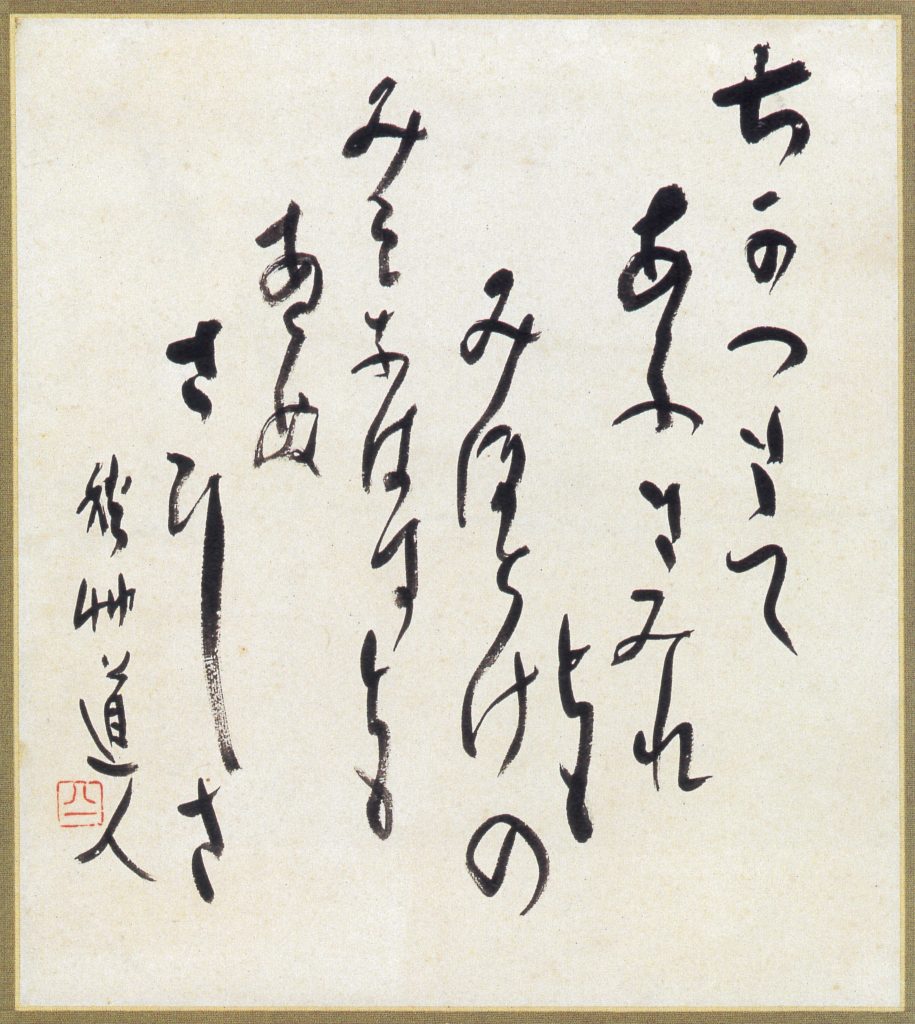 ちかつきて
あふきみれ
とも
みほとけの
みそなはすとも
あらぬ
さひしさ
秋艸道人
八一